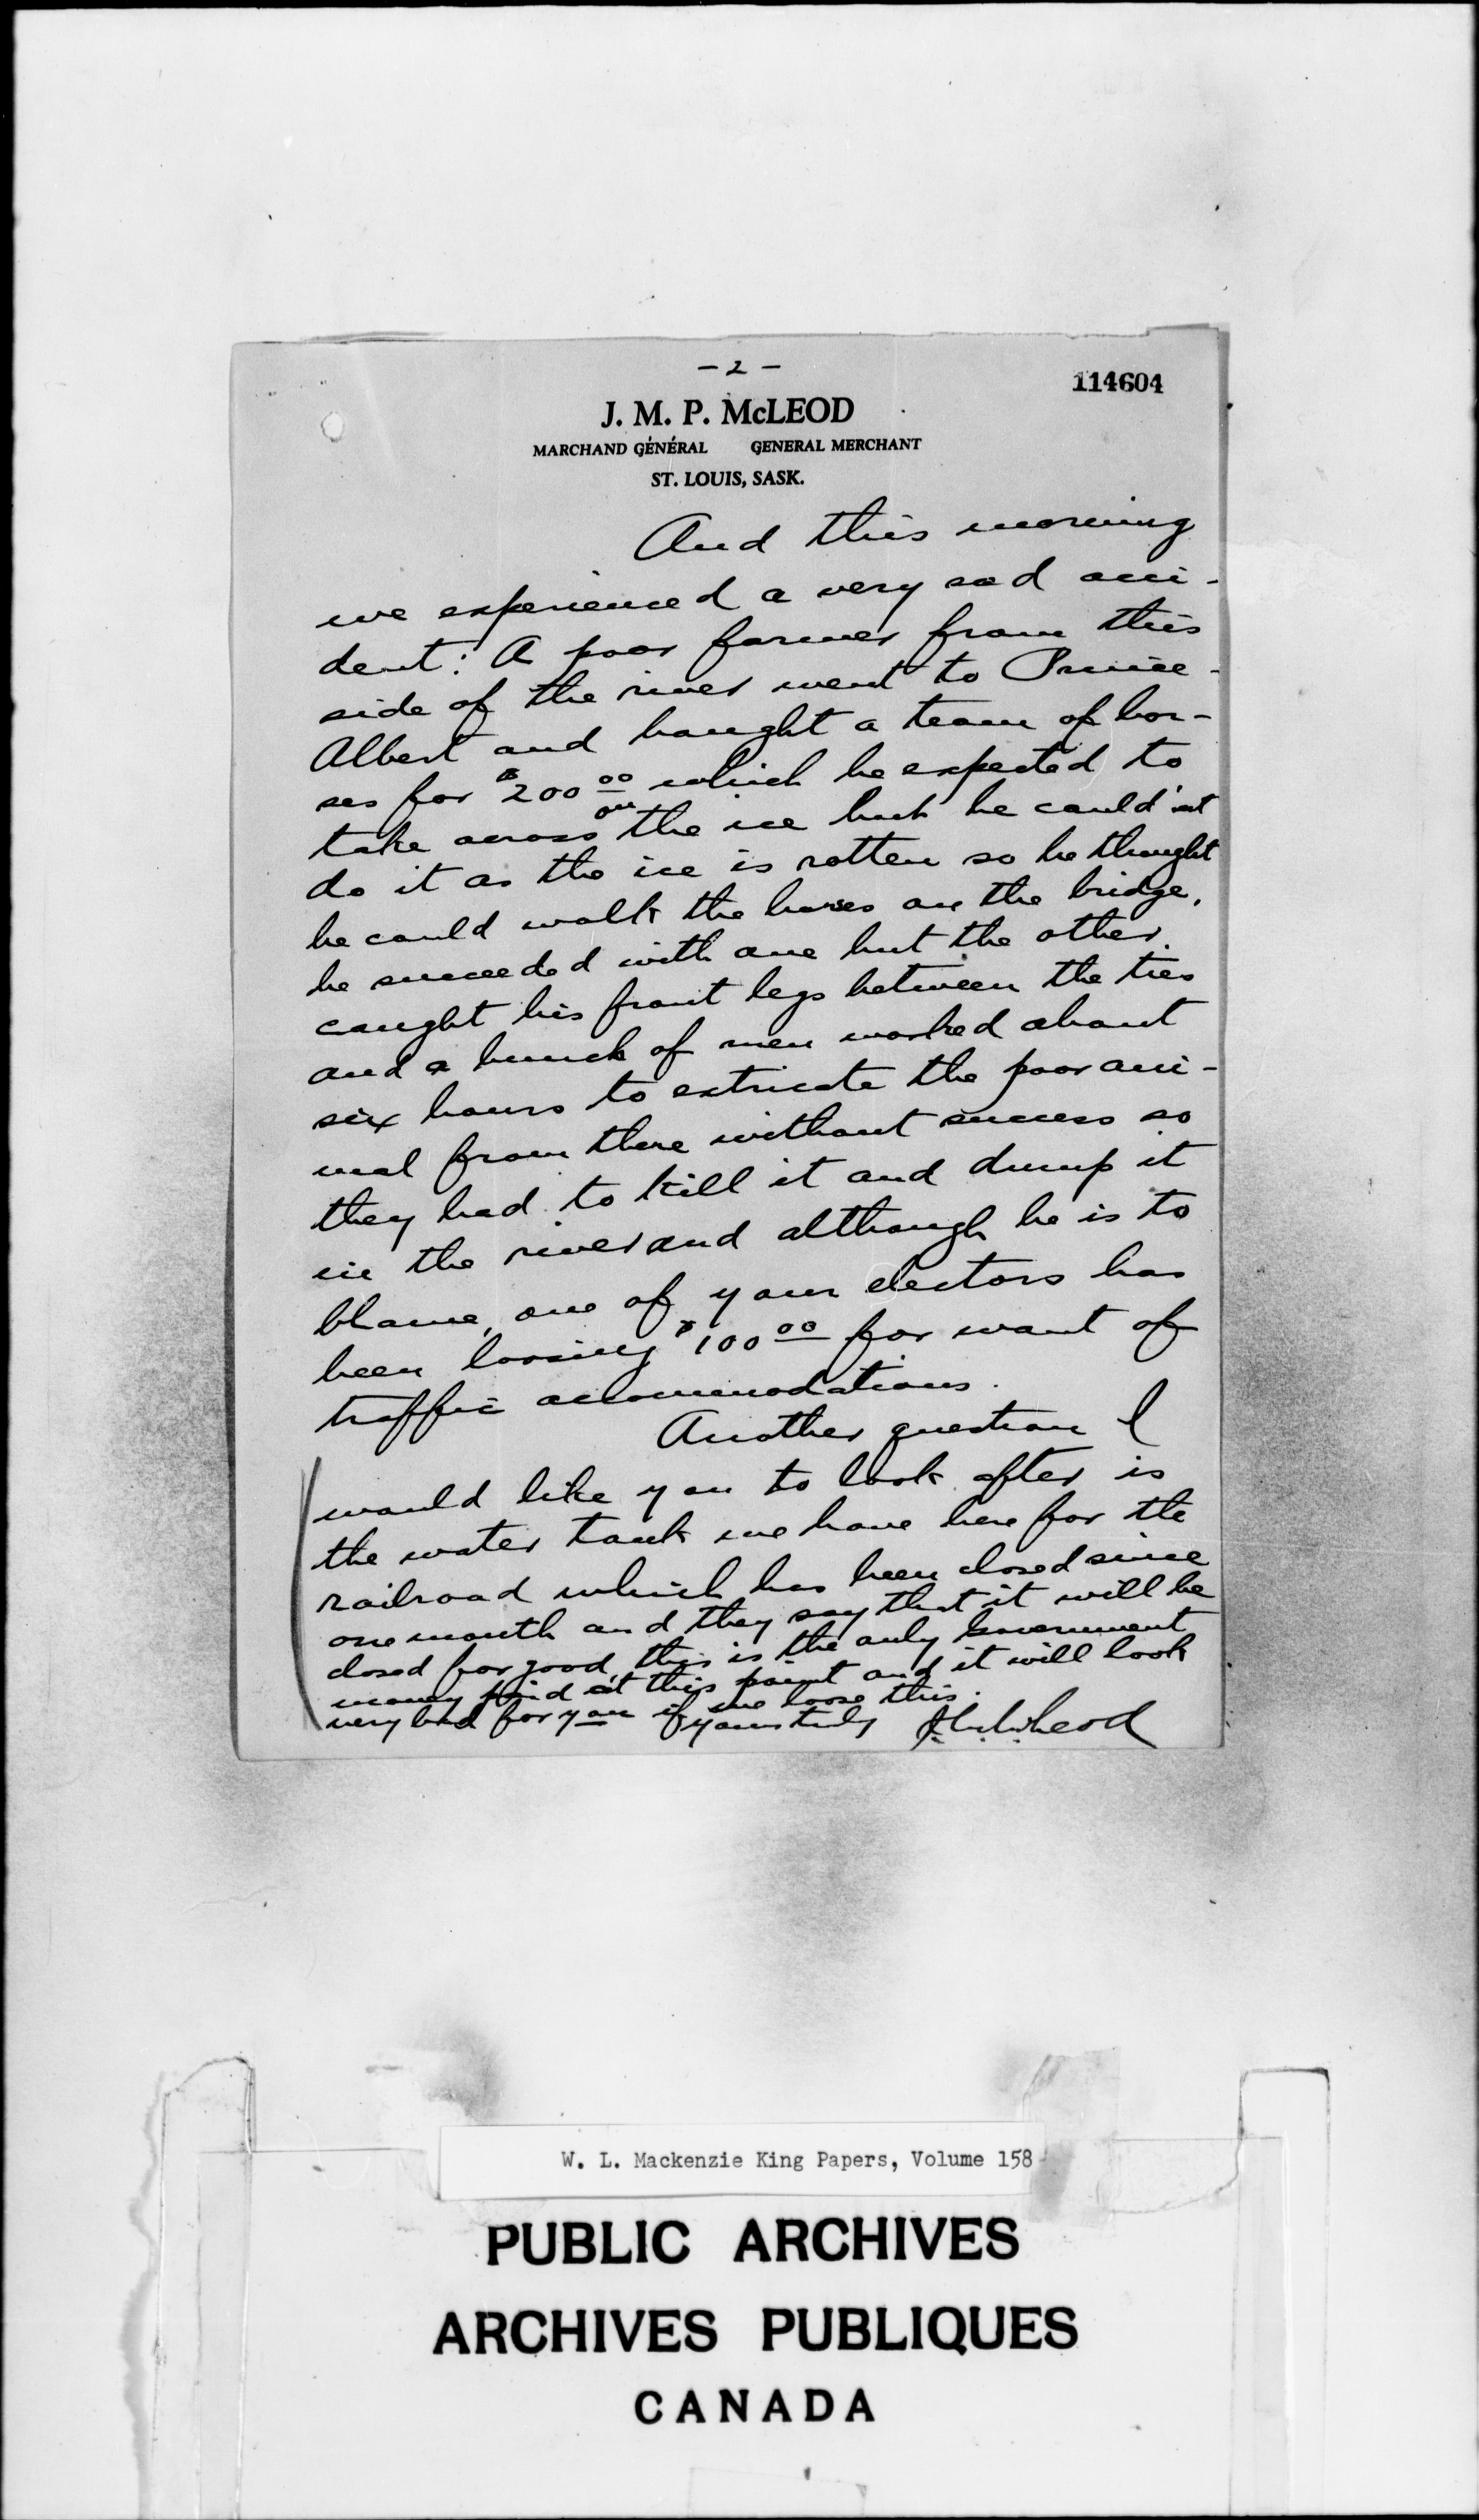 - 2 -
114604
J. M. P. McLEOD
MARCHAND GÉNÉRAL GENERAL MERCHANT
ST. LOUIS, SASK.
And this morning
we experienced a very sad acci-
dent: A poor farmer from this
side of the river went to Prince-
Albert and bought a team of hor-
ses for $200.00 which he expected to
take across on the ice but he could'nt
do it as the ice is rotten so he thought
he could walk the horses on the bridge,
he succeeded with one but the other
caught his front legs between the ties
and a bunch of men worked about
six hours to extricate the poor ani-
mal from there without success so
they had to kill it and dump it
in the river and although he is to
blame, one of your electors has
been loosing $100.00 for want of
traffic accommodations.
Another question I
would like you to look after is
the water tank we have here for the
railroad which has been closed since
one month and they say that it will be
closed for good, this is the only Government
money paid at this point and it will look
very bad for you if we loose this.
yours truly J.M.P. McLeod
W. L. Mackenzie King Papers, Volume 158
PUBLIC ARCHIVES
ARCHIVES PUBLIQUES
CANADA